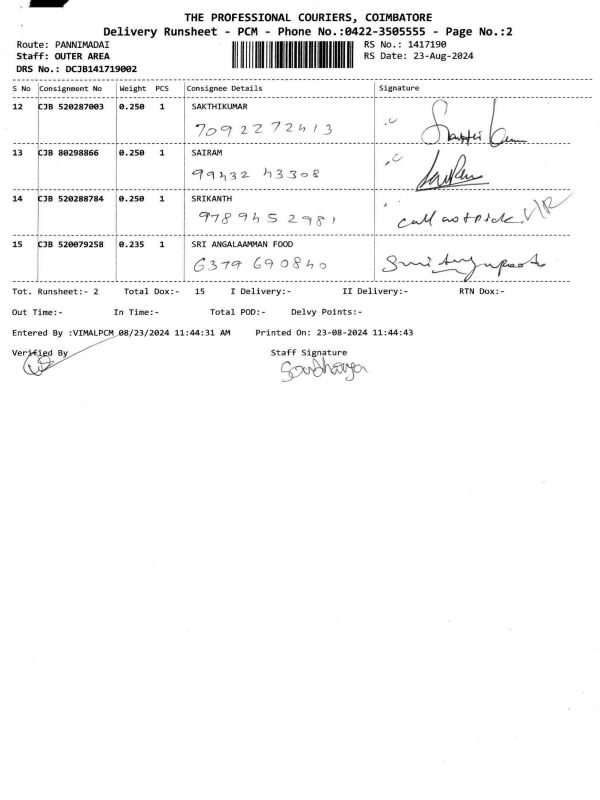 THE PROFESSIONAL COURIERS, COIMBATORE
Delivery Runsheet - PCM - Phone No.:0422-3505555 - Page No.:2
Route: PANNIMADAI RS No.: 1417190
Staff: OUTER AREA RS Date: 23-Aug-2024
DRS No.: DCJB141719002
S No Consignment No Weight PCS Consignee Details Signature
12 CJB 520287003 0.250 1 SAKTHIKUMAR
7092272413
13 CJB 80298866 0.250 1 SAIRAM
99432 43308
14 CJB 520288784 0.250 1 SRIKANTH
9789452981 call not pick
15 CJB 520079258 0.235 1 SRI ANGALAAMMAN FOOD
6379 690840
Tot. Runsheet:- 2 Total Dox:- 15 I Delivery:- II Delivery:- RTN Dox:-
Out Time:- In Time:- Total POD:- Delvy Points:-
Entered By :VIMALPCM 08/23/2024 11:44:31 AM Printed On: 23-08-2024 11:44:43
Verified By Staff Signature